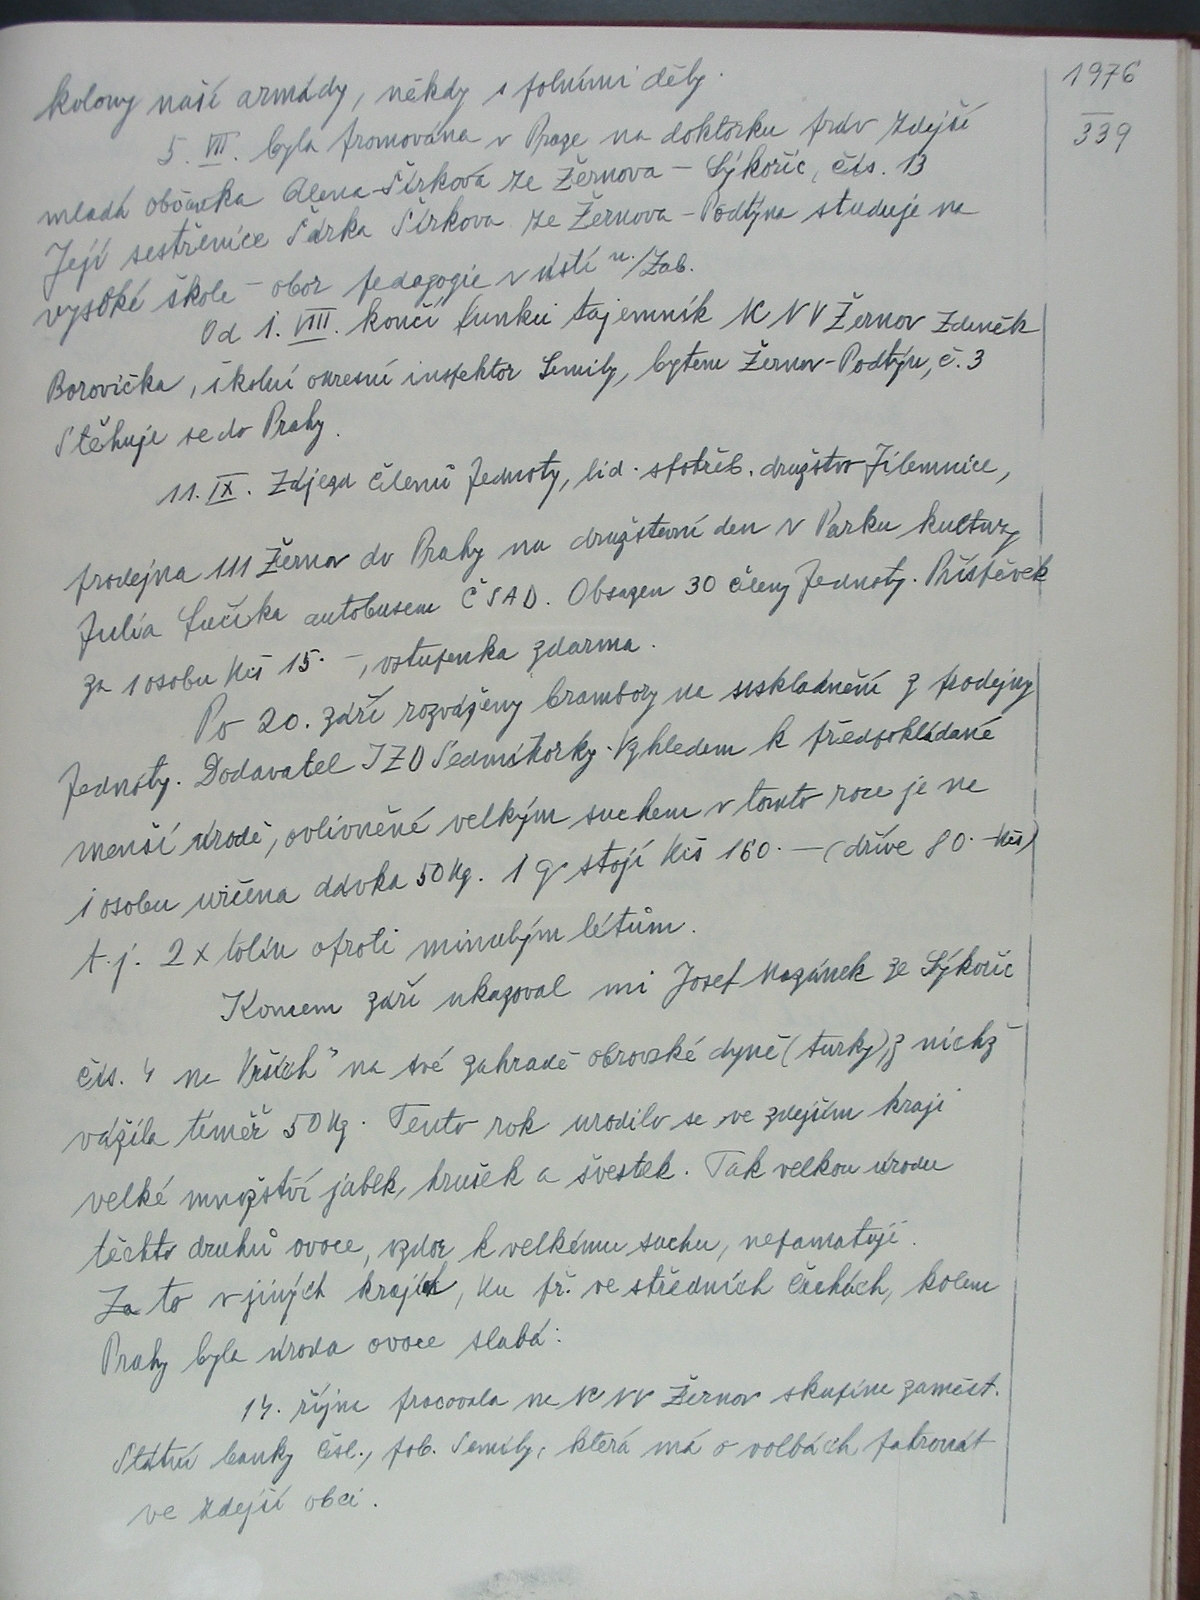 1976
339
kolony naší armády, někdy s polními děly.
5. VII. byla promována v Praze na doktorku práv zdejší
mladá občanka Alena Šírková ze Žernova - Sýkořic, čís. 13
Její sestřenice Šárka Šírkova ze Žernova - Podtýna studuje na
vysoké škole - obor pedagogie v ústí n./Lab.
Od 1. VIII. končí funkci tajemník MNV Žernov Zdeněk
Borovička, školní okresní inspektor Semily, bytem Žernov-Podtýn, č. 3
Stěhuje se do Prahy.
11. IX. Zájezd členů Jednoty, lid. spotřeb. družstvo Jilemnice,
prodejna 111 Žernov do Prahy na družstevní den v Parku kultury
Julia Fučíka autobusem ČSAD. Obsazen 30 členy Jednoty. Příspěvek
za 1 osobu Kčs 15.-, vstupenka zdarma.
Po 20. září rozváženy brambory na uskladnění z prodejny
Jednoty. Dodavatel JZD Sedmihorky. Vzhledem k předpokládané
menší úrodě, ovlivněné velkým suchem v tomto roce je na
1 osobu určena dávka 50 kg. 1 q stojí Kčs 160.- (dříve 80.- Kčs)
t. j. 2 x tolik oproti minulým létům.
Koncem září ukazoval mi Josef ze Sýkořic
čís. 4 na Vrších" na své zahradě obrovské dyně (turky), z nichž
vážila téměř 50 kg. Tento rok urodilo se ve zdejším kraji
velké množství jablek, hrušek a švestek. Tak velkou úrodu
těchto druhů ovoce, vzdor k velkému suchu, nepamatuji.
Za to v jiných krajích, ku př. ve středních Čechách, kolem
Prahy byla úroda ovoce slabá.
14. října pracovala na MNV Žernov skupina zaměst.
Státní banky Čsl., pob. Semily, která má o volbách patronát
ve zdejší obci.